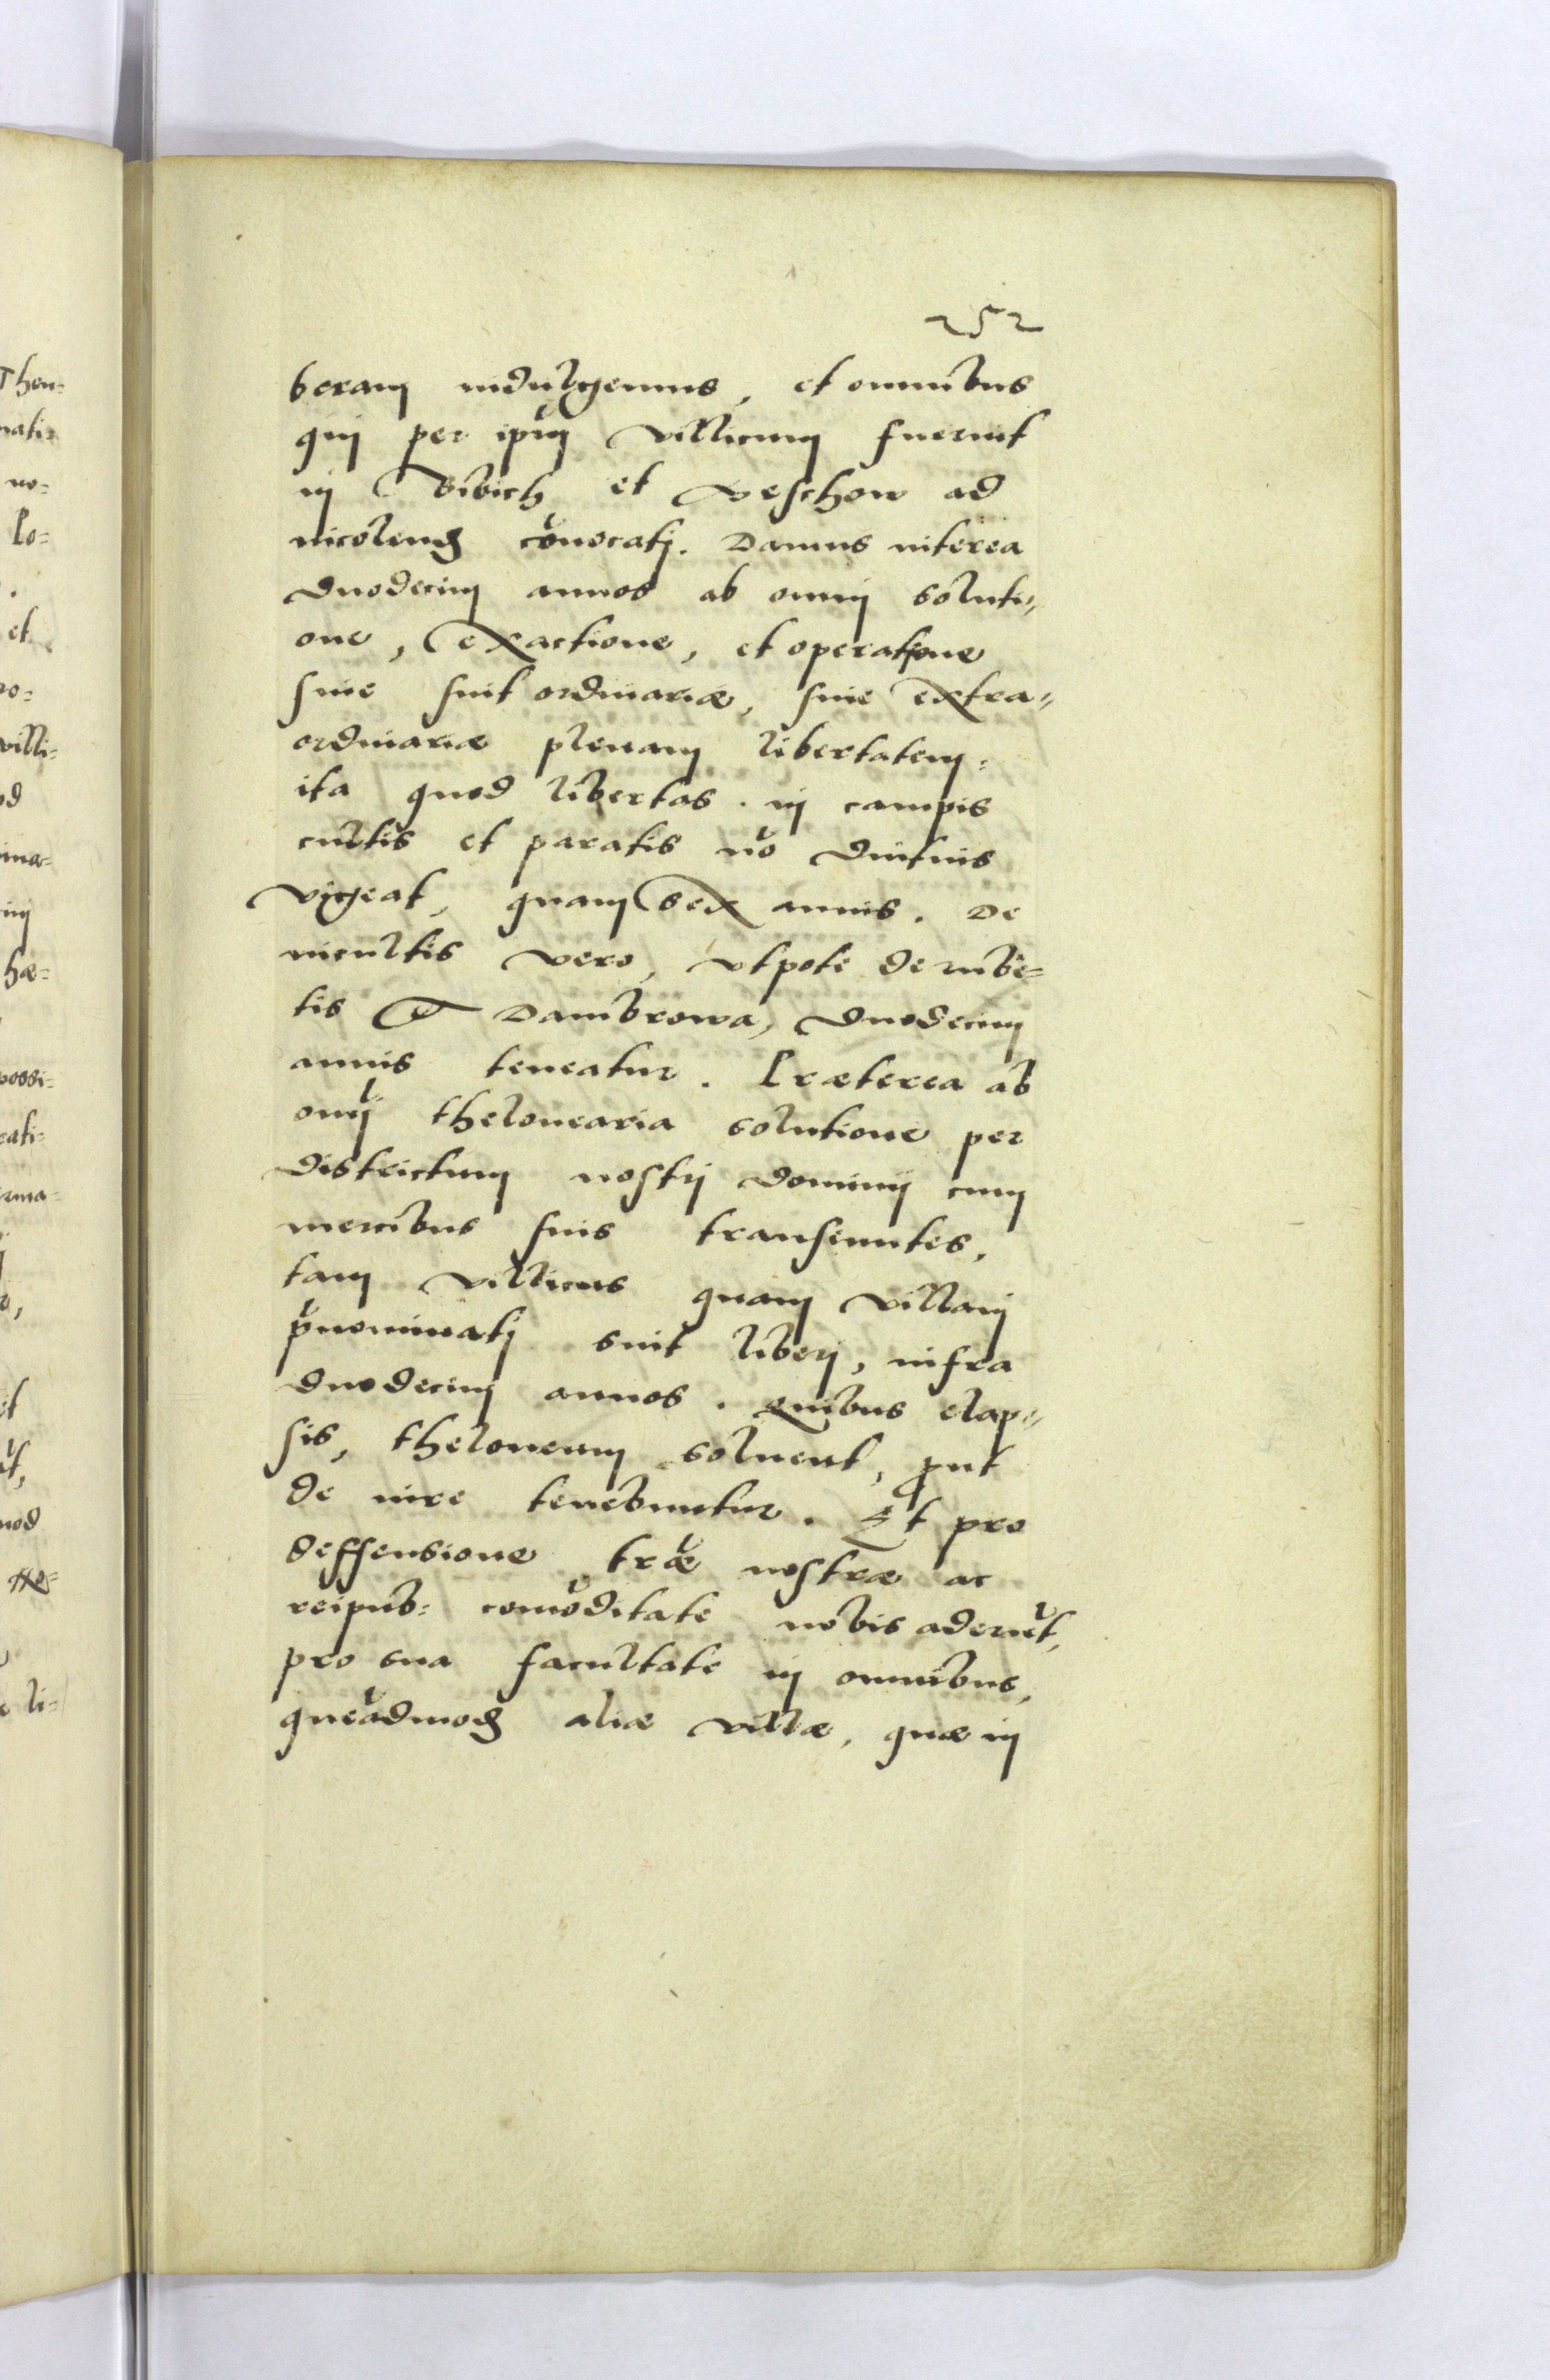 252
beram indulgemus, et omnibus
quj per ipũm villicum fuerint
in Bibich et Veschow ad
incolend cõuocatj. Damus interea
duodecim annos ab omnj soluti„
one, exactione, et operatjone
siue sint ordinariæ, siue extra„
ordinariæ plenam libertatem:
ita quod libertas. in campis
cultis et paratis nõ diutius
vigeat, quam sex annis. De
incultis vero, vtpote de rube„
tis & Dambrowa, duodecim
annis teneatur. Præterea ab
omj̃ thelonearia solutione per
districtum nostrj dominij cum
mercibus suis transeuntes,
tam villicus quam villanj
p̃nominatj sint liberj, infra
duodecim annos. quibus elap„
sis, theloneum soluent, ꝓut
de iure tenebuntur. Et pro
deffensione tr̃æ nostræ ac
reipub: com̃oditate nobis aderũt,
pro sua facultate in omnibus,
queãdmod aliæ villæ, quæ in